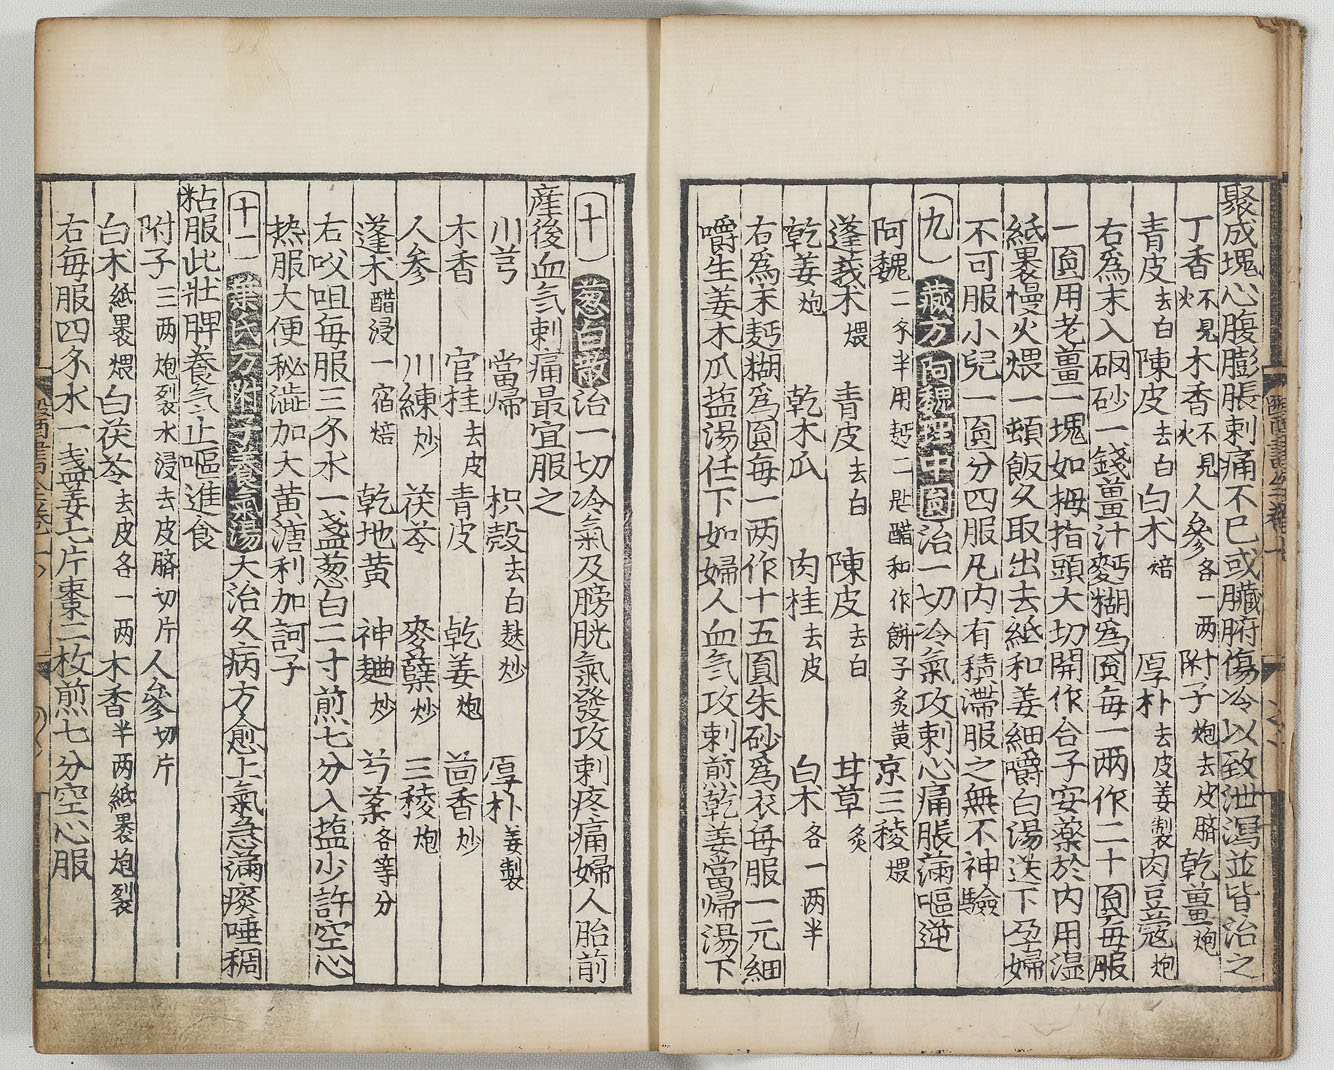 聚成塊心腹膨脹刺痛不已或臓腑傷冷以致泄瀉並皆治之
丁香不見火木香不見火人參各一两附子炮去皮臍乾薑炮
青皮去白陳皮去白白术焙厚朴去皮姜製肉豆蔻炮
右爲末入硇砂一錢薑汁麪糊爲圓每一两作二十圓每服
一圓用老薑一塊如拇指頭大切開作合子安藥於内用湿
紙裹慢火煨一頓飯久取出去紙和姜細嚼白湯送下孕婦
不可服小兒一圓分四服凡内有積滯服之無不神驗
九 藏方阿魏理中圓治一切冷氣攻刺心痛脹滿嘔逆
阿魏一分半用麪二匙醋和作餅子炙黄京三稜煨
蓬莪术煨 青皮去白 陳皮去白 甘草炙
乾姜炮 乾木瓜 肉桂去皮 白术各一两半
右爲末麪糊爲圓每一两作十五圓朱砂爲衣每服一元細
嚼生姜木瓜盐湯任下如婦人血气攻刺煎乾姜當帰湯下
十 葱白散治一切冷氣及膀胱氣發攻刺疼痛婦人胎前
産後血气刺痛最宜服之
川芎 當帰 枳殻去白麸炒 厚朴姜製
木香 官桂去皮 青皮 乾姜炮 茴香炒
人参 川練炒 茯苓 麥蘖炒 三稜炮
蓬术醋浸一宿焙 乾地黄 神麯炒 芍薬各等分
右㕮咀每服三分水一盞葱白二寸煎七分入盐少許空心
热服大便秘澁加大黄溏利加訶子
十一 葉氏方附子養氣湯大治久病方愈上氣急滿痰唾稠
粘服此壮脾養气止嘔進食
附子三两炮裂水浸去皮臍切片人參切片
白术紙裹煨白茯苓去皮各一两木香半两紙裹炮裂
右每服四分水一盞姜七片棗二枚煎七分空心服